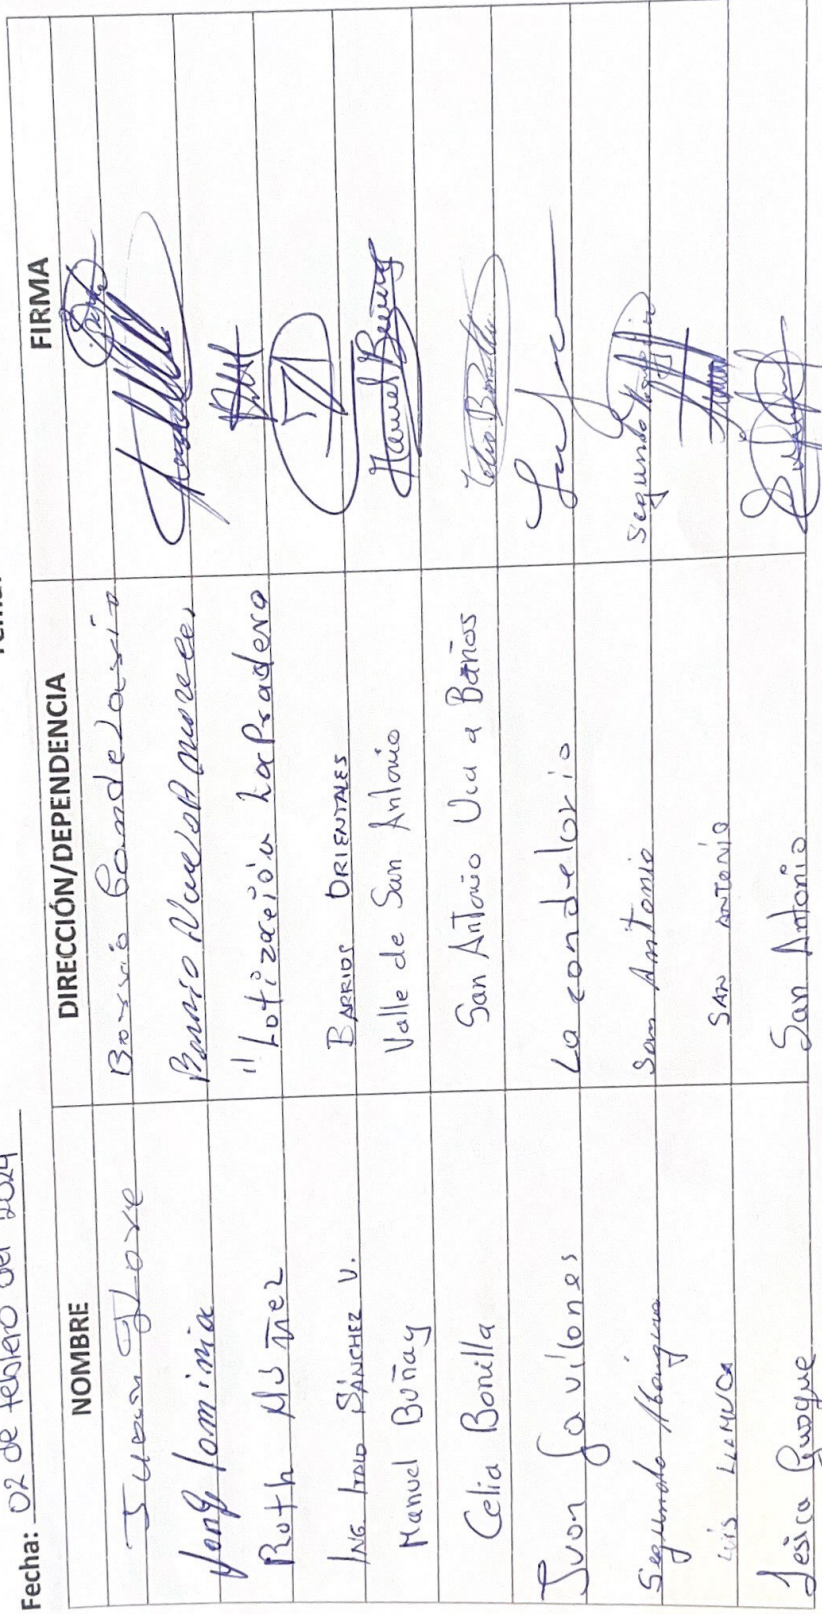 Fecha: 02 de febrero del 2024
NOMBRE DIRECCIÓN/DEPENDENCIA FIRMA
Juan Barrio Candelaria
Jorge Barrio Nuevos
Ruth Núñez "Lotización La Pradera
ING. ITALO SÁNCHEZ V. BARRIOS ORIENTALES
Manuel Buñay Valle de San Antonio Manuel Buñay
Celia Bonilla San Antonio Via a Baños Celia Bonilla
Juan Gavilanes La candelaria
Segundo San Antonio Segundo
Luis LLAMUCA SAN ANTONIO
Jesica Guaque San Antonio